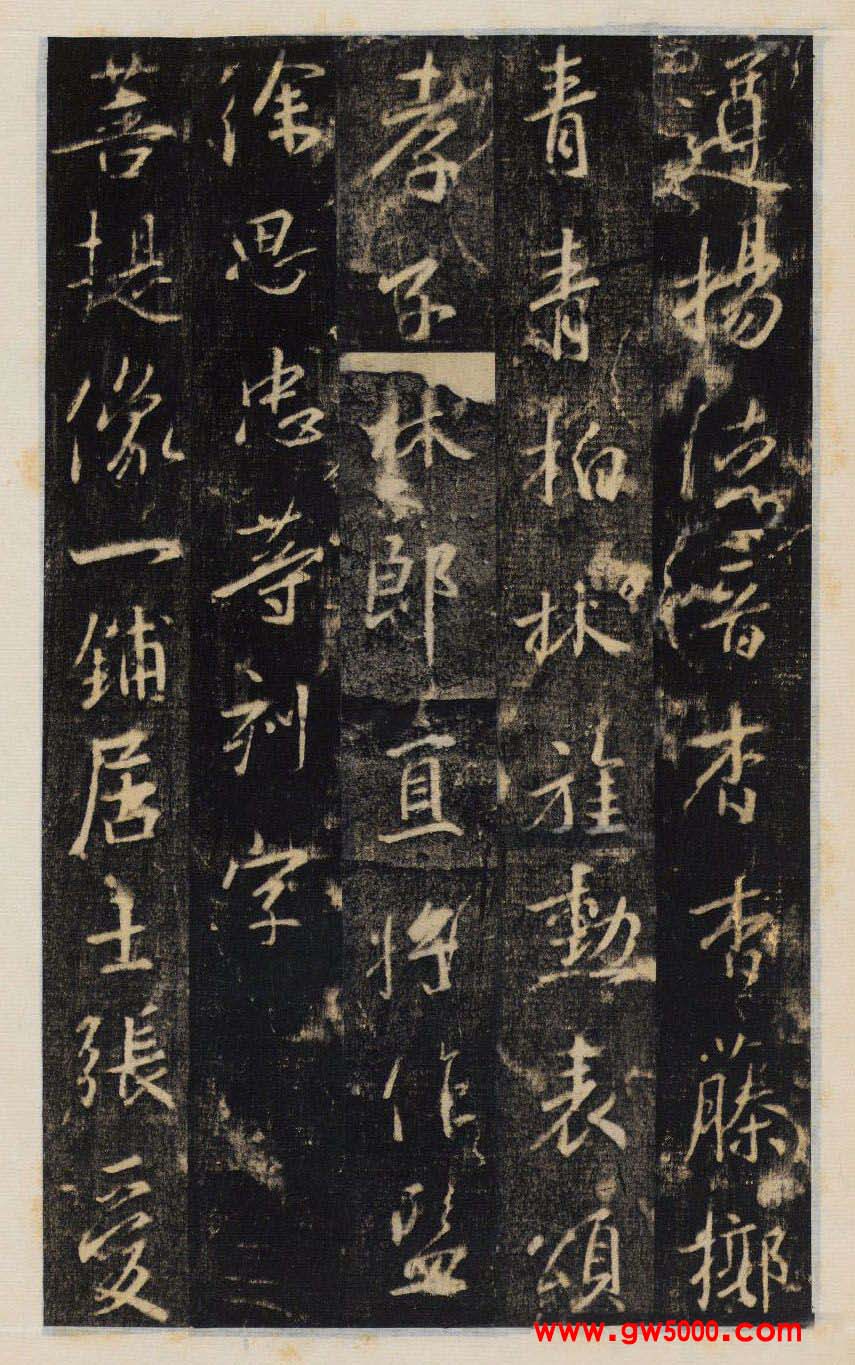 遵揚德音杳杳藤擲
青青柏林旌勳表頌
孝子林郎直將作監
徐思忠等刻字
菩提像一鋪居士張愛
www.gw5000.com